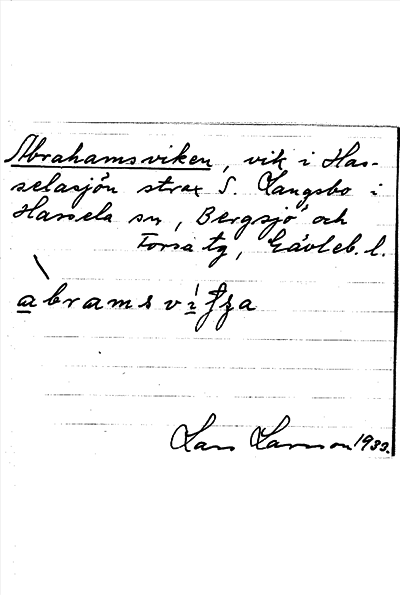 Abrahamsviken, vik i Has-
selasjön strax S. Långsbo i
Hassela sn, Bergsjö och
Forsa tg, Gävleb. l.
Lars Larsson 1933.